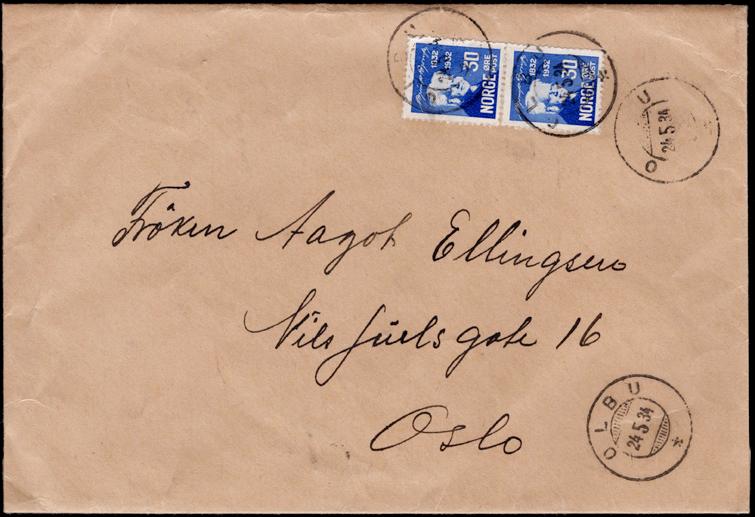 1832 1932
30 ØRE
NORGE POST
1832 1932
30 ØRE
NORGE POST
O L U
24 5 34
Frøken Aagot Ellingsen
Nils Juels gate 16
Oslo
OLBU
24 5 34